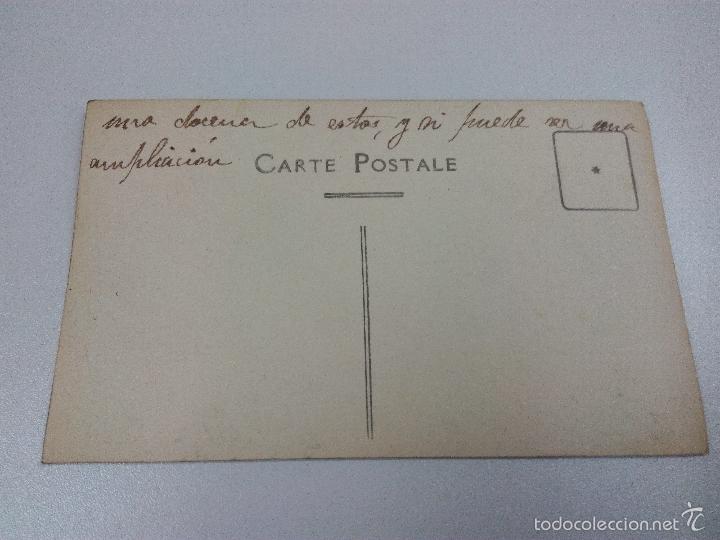 una docena de estas, y si puede ser una
ampliación
CARTE POSTALE
todocoleccion.net